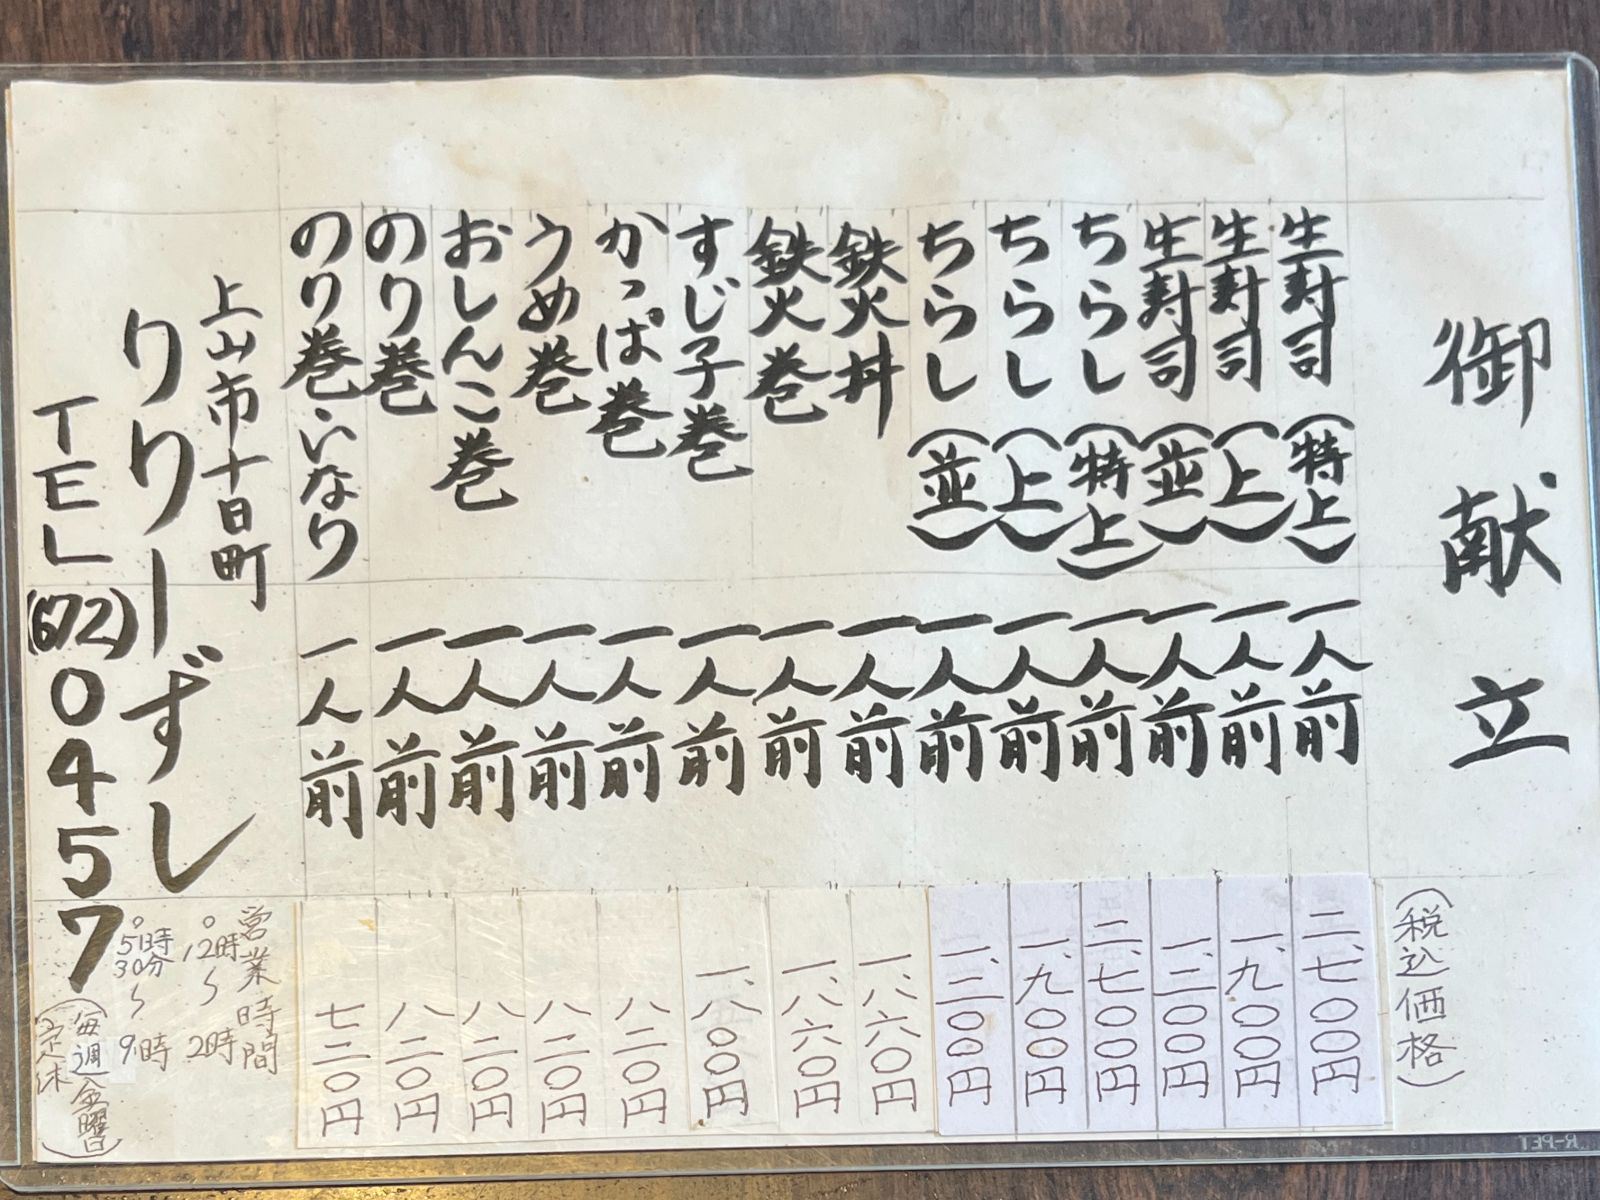 御献立
(税込価格)
生寿司(特上) 一人前 二、七〇〇円
生寿司(上) 一人前 一、九〇〇円
生寿司(並) 一人前 一、二〇〇円
ちらし(特上) 一人前 二、七〇〇円
ちらし(上) 一人前 一、九〇〇円
ちらし(並) 一人前 一、二〇〇円
鉄火丼 一人前 一、八六〇円
鉄火巻 一人前 一、八六〇円
すじ子巻 一人前 一、八〇〇円
かっぱ巻 一人前 八二〇円
うめ巻 一人前 八二〇円
おしんこ巻 一人前 八二〇円
のり巻 一人前 八二〇円
のり巻・いなり 一人前 七二〇円
上山市十日町
りりーずし
TEL(672)0457
営業時間
○12時〜2時
○5時30分〜9時
(毎週金曜日
定休)
R-PET